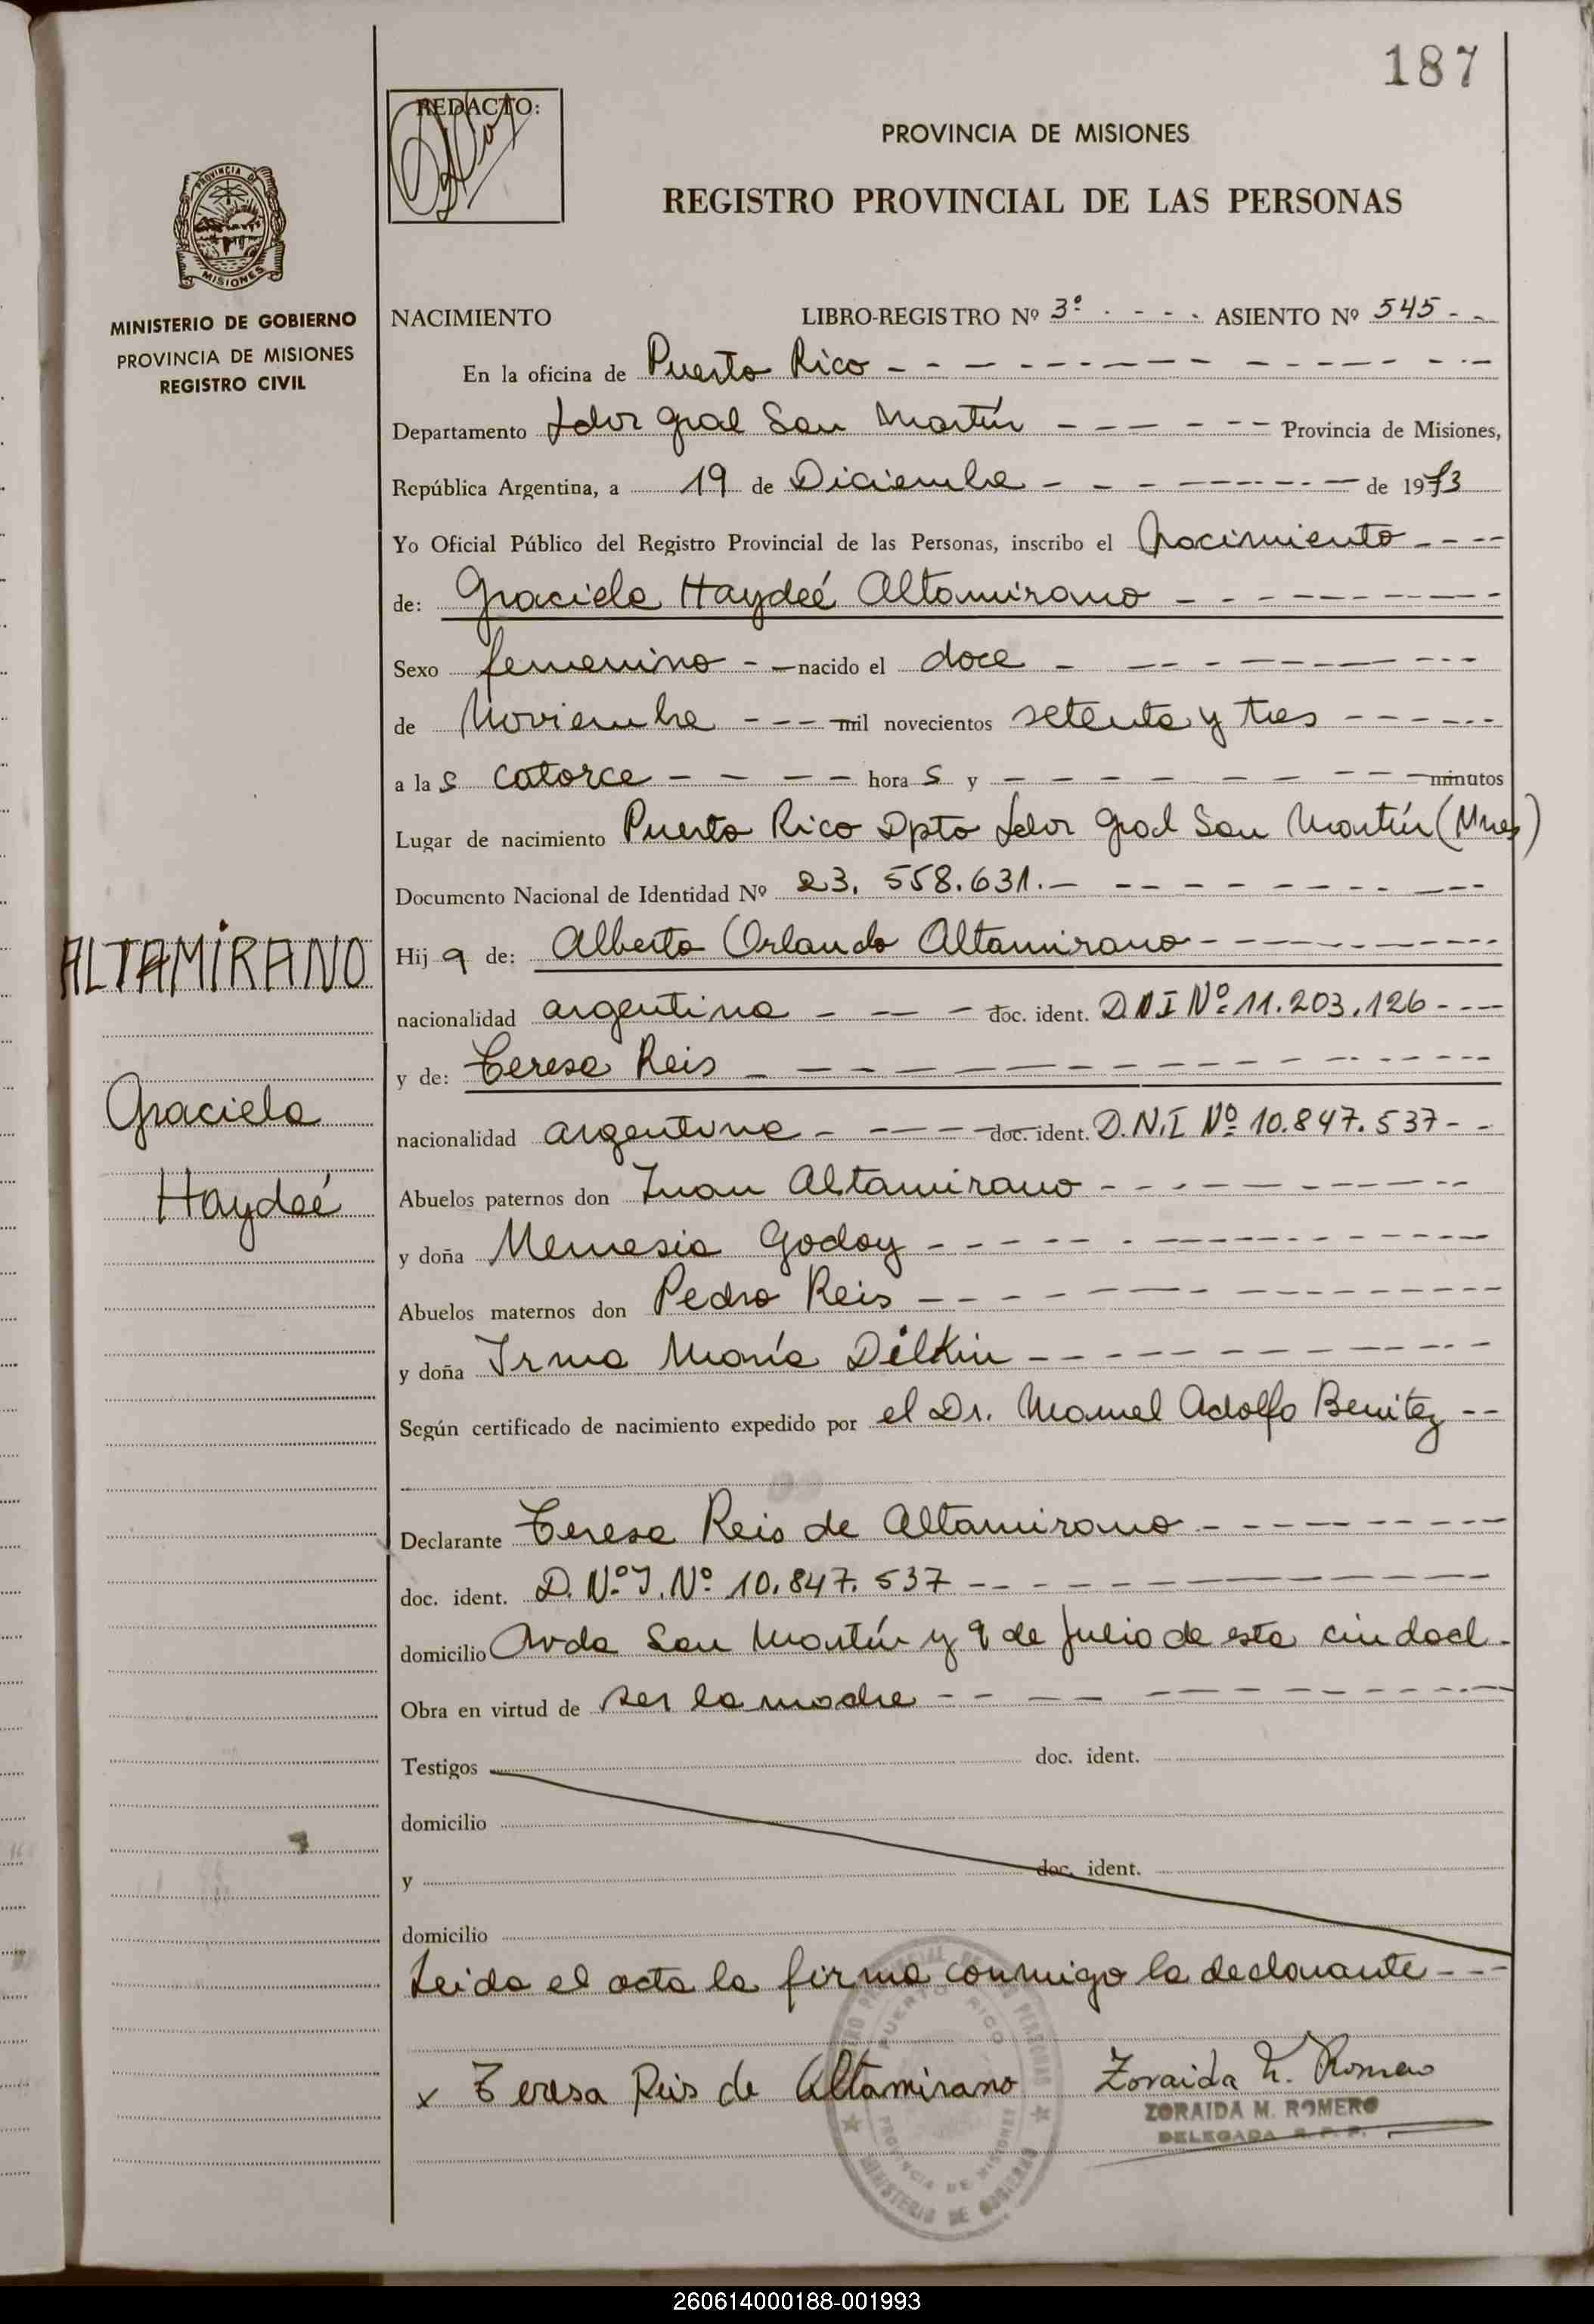 187
REDACTO:
PROVINCIA DE MISIONES
REGISTRO PROVINCIAL DE LAS PERSONAS
PROVINCIA DE
MISIONES
MINISTERIO DE GOBIERNO
PROVINCIA DE MISIONES
REGISTRO CIVIL
NACIMIENTO LIBRO-REGISTRO Nº 3º - - - - ASIENTO Nº 545 - -
En la oficina de Puerto Rico
Departamento Ldor Gral San Martín Provincia de Misiones,
República Argentina, a 19 de Diciembre de 1973
Yo Oficial Público del Registro Provincial de las Personas, inscribo el Nacimiento
de: Graciela Haydeé Altamirano
Sexo femenino nacido el doce
de Noviembre mil novecientos setenta y tres
a las catorce horas y minutos
Lugar de nacimiento Puerto Rico Dpto Ldor Gral San Martín (Mnes)
Documento Nacional de Identidad Nº 23.558.631.-
ALTAMIRANO
Hija de: Alberto Orlando Altamirano
nacionalidad argentina doc. ident. D.N.I Nº 11.203.126
y de: Teresa Reis
Graciela
nacionalidad argentina doc. ident. D.N.I Nº 10.847.537
Haydeé
Abuelos paternos don Juan Altamirano
y doña Nemesia Godoy
Abuelos maternos don Pedro Reis
y doña Irma María Dilkin
Según certificado de nacimiento expedido por el Dr. Manuel Adolfo Benitez
Declarante Teresa Reis de Altamirano
doc. ident. D.Nº I. Nº 10.847.537
domicilio Avda San Martín y 9 de Julio de esta ciudad
Obra en virtud de ser la madre
Testigos doc. ident.
domicilio
y doc. ident.
domicilio
Leida el acta la firma conmigo la declarante
x Teresa Reis de Altamirano Zoraida M. Romero
ZORAIDA M. ROMERO
DELEGADA R. P. P.
PUERTO RICO
PROVINCIA DE MISIONES
MINISTERIO DE GOBIERNO
260614000188-001993